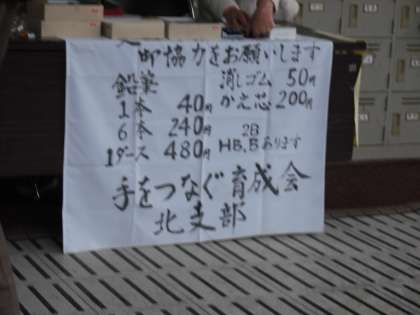 御協力をお願いします
鉛筆
1本 40円
6本 240円
1ダース 480円
消しゴム 50円
かえ芯 200円
2B
HB、Bあります
手をつなぐ育成会
北支部